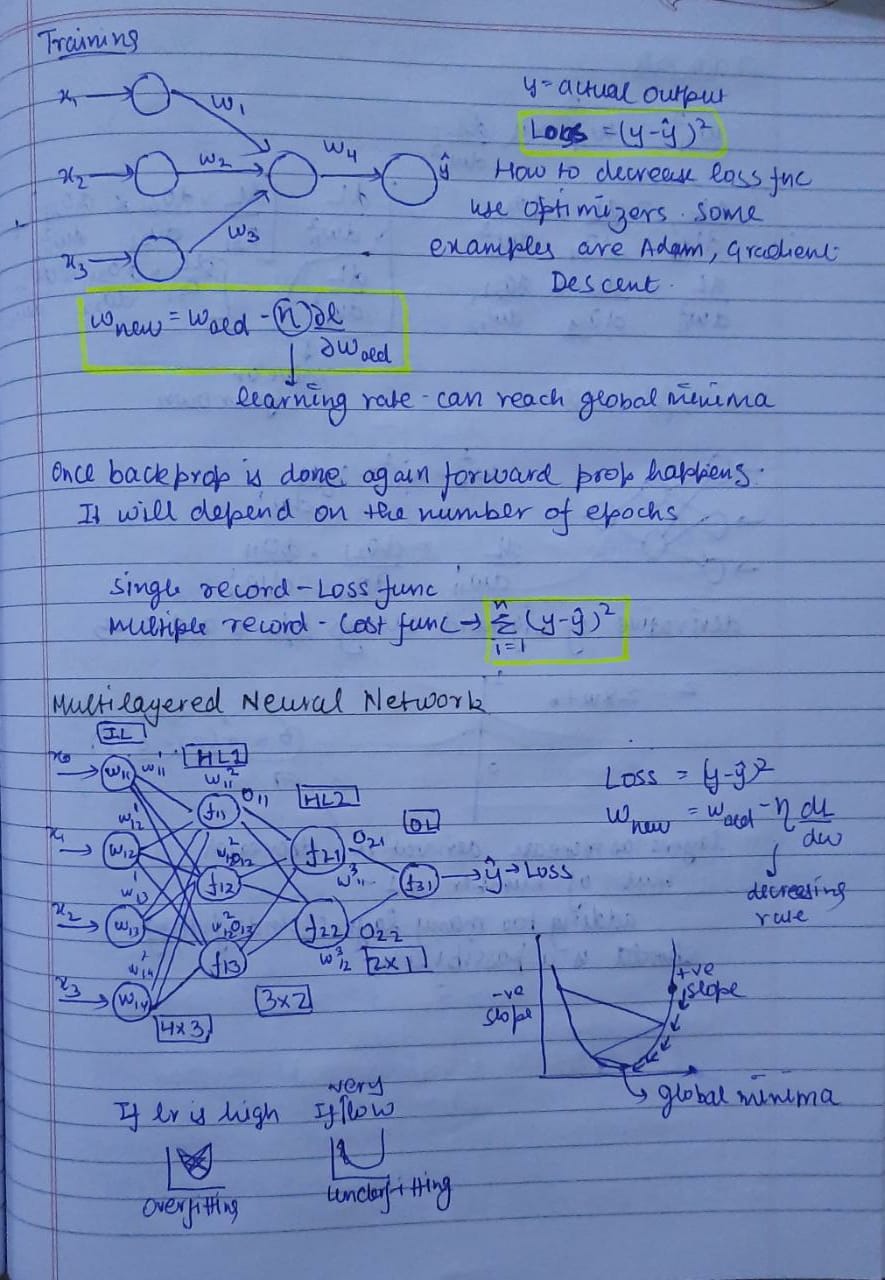 Training
x₁ w₁
y = actual output
Loss = (y-ŷ)²
x₂ w₂ w₄ ŷ
How to decrease loss fnc
use optimizers. Some
x₃ w₃
examples are Adam, Gradient
Descent.
w new = w old - (η) ∂l
∂w old
learning rate - can reach global minima
Once backprop is done, again forward prop happens.
It will depend on the number of epochs.
Single record - Loss func
Multiple record - Cost func → n Σ i=1 (y-ŷ)²
Multilayered Neural Network
IL
HL1
HL2
OL
x₁ w₁₂ f₁₂ f₂₁ O₂₁ f₃₁ → ŷ → Loss
x₂ w₁₃ f₁₃ f₂₂ O₂₂
x₃ w₁₄
f₁₁ O₁₁
4x3
3x2
2x1
Loss = (y-ŷ)²
w new = w old - η dL
dw
decreasing
rate
-ve
slope
+ve
slope
global minima
If lr is high
very
If low
Overfitting
Underfitting